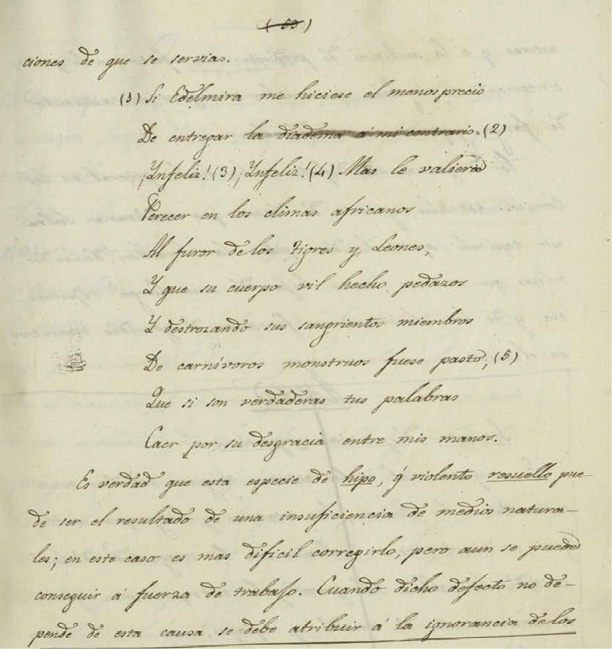 ( 63 )
ciones de que se servia.
(1) Si Edelmira me hiciese el menosprecio
De entregar la diadema a mi contrario. (2)
¡Ynfeliz! (3) ¡Ynfeliz! (4) Mas le valiera
Perecer en los climas africanos
Al furor de los tigres y Leones,
Y que su cuerpo vil hecho pedazos
Y destrozando sus sangrientos miembros
De carnívoros monstruos fuese pasto, (5)
Que si son verdaderas tus palabras
Caer por su desgracia entre mis manos.
Es verdad que esta especie de hipo, y violento resuello pue-
de ser el resultado de una insuficiencia de medios natura-
les; en este caso es mas dificil corregirlo, pero aun se puede
conseguir á fuerza de trabajo. Cuando dicho defecto no de-
pende de esta causa se debe atribuir á la ignorancia de los